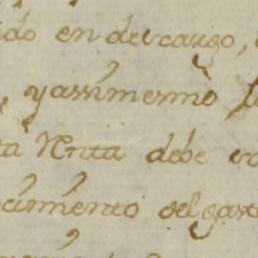 ido en descargo,
yassimesmo
ta Renta debe
cimiento del gast